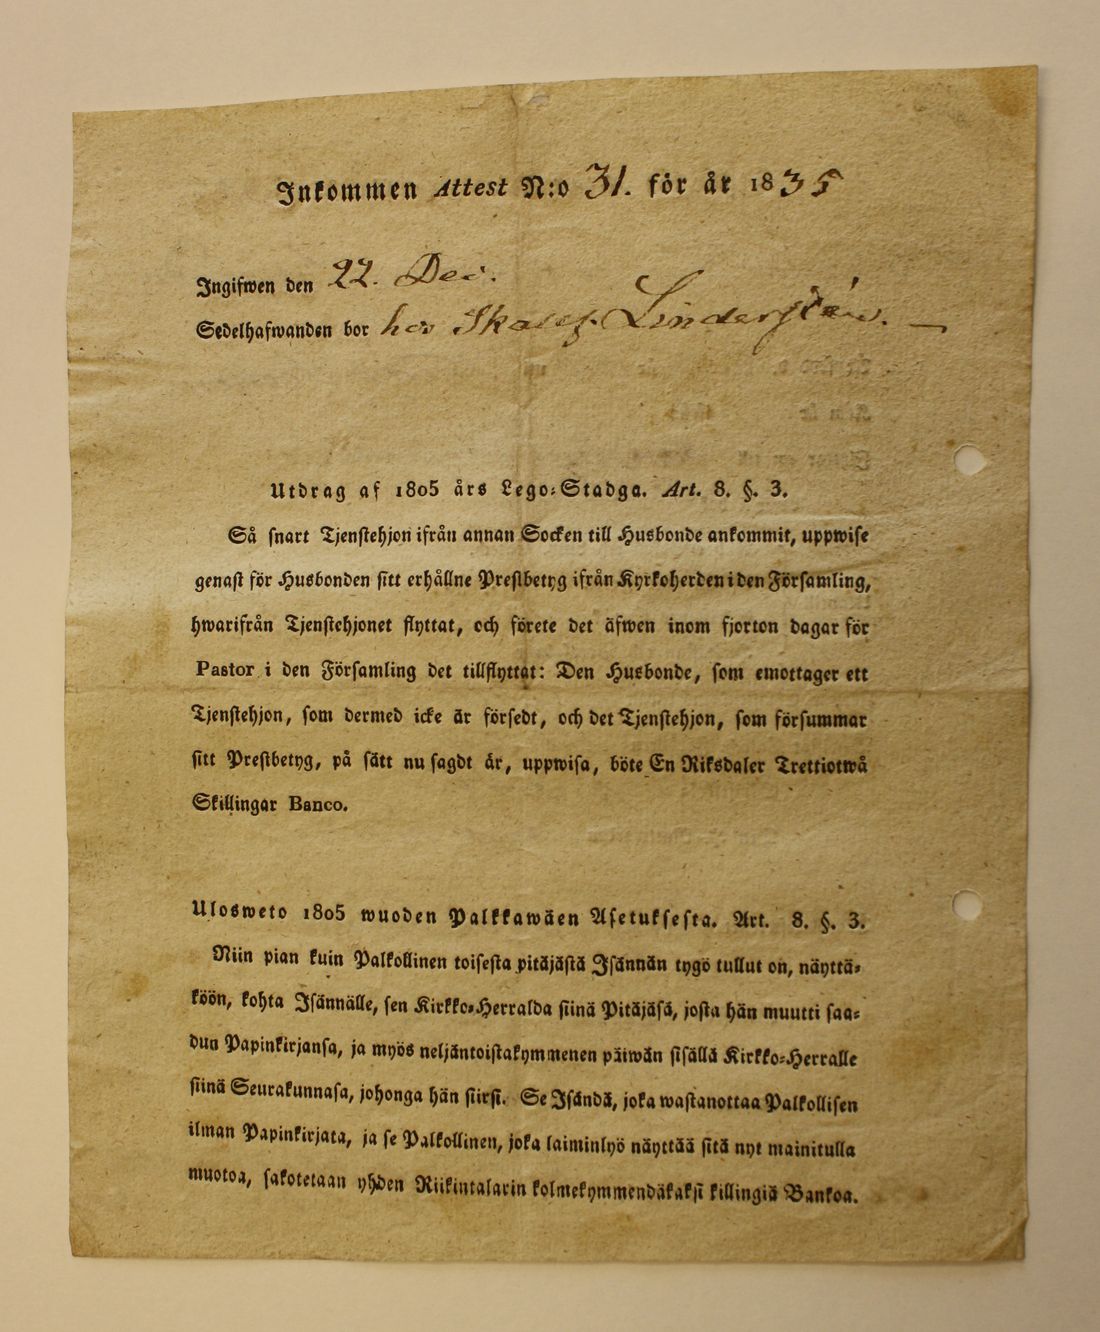 Inkommen Attest N:o 31. för år 1835
Ingifwen den 22. Dec.
Sedelhafwanden bor hos
Utdrag af 1805 års Lego-Stadga. Art. 8. §. 3.
Så snart Tjenstehjon ifrån annan Socken till Husbonde ankommit, uppwise
genast för Husbonden sitt erhållne Prestbetyg ifrån Kyrkoherden i den Församling,
hwarifrån Tjenstehjonet flyttat, och förete det äfwen inom fjorton dagar för
Pastor i den Församling det tillflyttat: Den Husbonde, som emottager ett
Tjenstehjon, som dermed icke är försedt, och det Tjenstehjon, som försummar
sitt Prestbetyg, på sätt nu sagdt är, uppwisa, böte En Riksdaler Trettiotwå
Skillingar Banco.
Ulosweto 1805 wuoden Palkkawäen Asetuksesta. Art. 8. §. 3.
Niin pian kuin Palkollinen toisesta pitäjästä Isännän tygö tullut on, näyttä-
köön, kohta Isännälle, sen Kirkko-Herralda siinä Pitäjäsä, josta hän muutti saa-
dun Papinkirjansa, ja myös neljäntoistakymmenen päiwän sisällä Kirkko-Herralle
siinä Seurakunnasa, johonga hän siirsi. Se Isändä, joka wastanottaa Palkollisen
ilman Papinkirjata, ja se Palkollinen, joka laiminlyö näyttää sitä nyt mainitulla
muotoa, sakotetaan yhden Riikintalarin kolmekymmendäkaksi killingiä Bankoa.